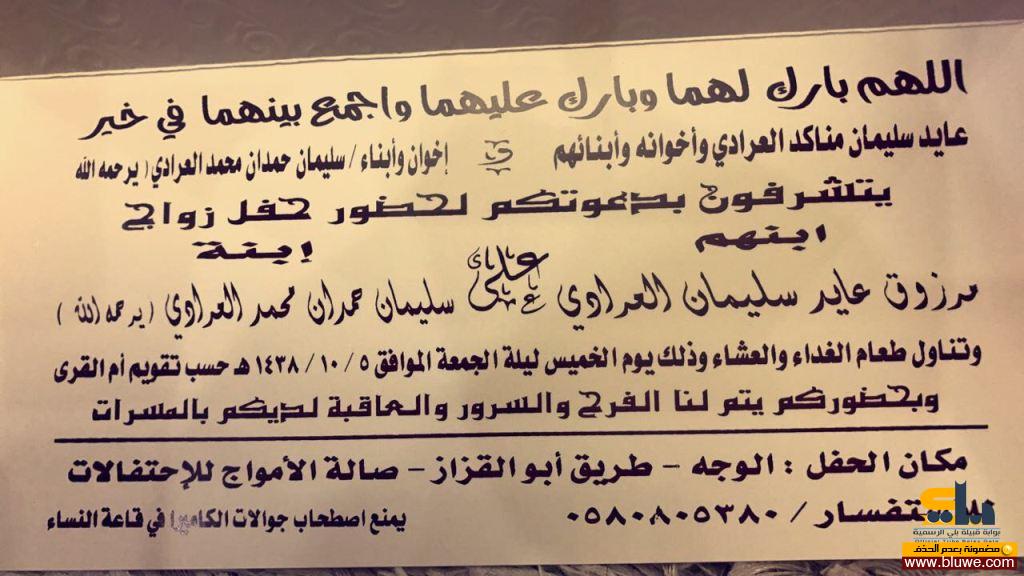 اللهم بارك لهما وبارك عليهما واجمع بينهما في خير
عايد سليمان مناكد العرادي وأخوانه وأبنائهم و إخوان وأبناء / سليمان حمدان محمد العرادي ( يرحمه الله
يتشرفون بدعوتكم لحضور حفل زواج
ابنهم إبنة
مرزوق عايد سليمان العرادي على سليمان حمدان محمد العرادي ( يرحمه الله )
وتناول طعام الغداء والعشاء وذلك يوم الخميس ليلة الجمعة الموافق ٥ / ١٠ / ١٤٣٨ هـ حسب تقويم أم القرى
وبحضوركم يتم لنا الفرح والسرور والعاقبة لديكم بالمسرات
مكان الحفل : الوجه - طريق أبو القزاز - صالة الأمواج للإحتفالات
للاستفسار / ٠٥٨٠٨٠٥٣٨٠ يمنع اصطحاب جوالات الكاميرا في قاعة النساء
بلي
بوابة قبيلة بلي الرسمية
مضمونة بعدم الحذف
www.bluwe.com